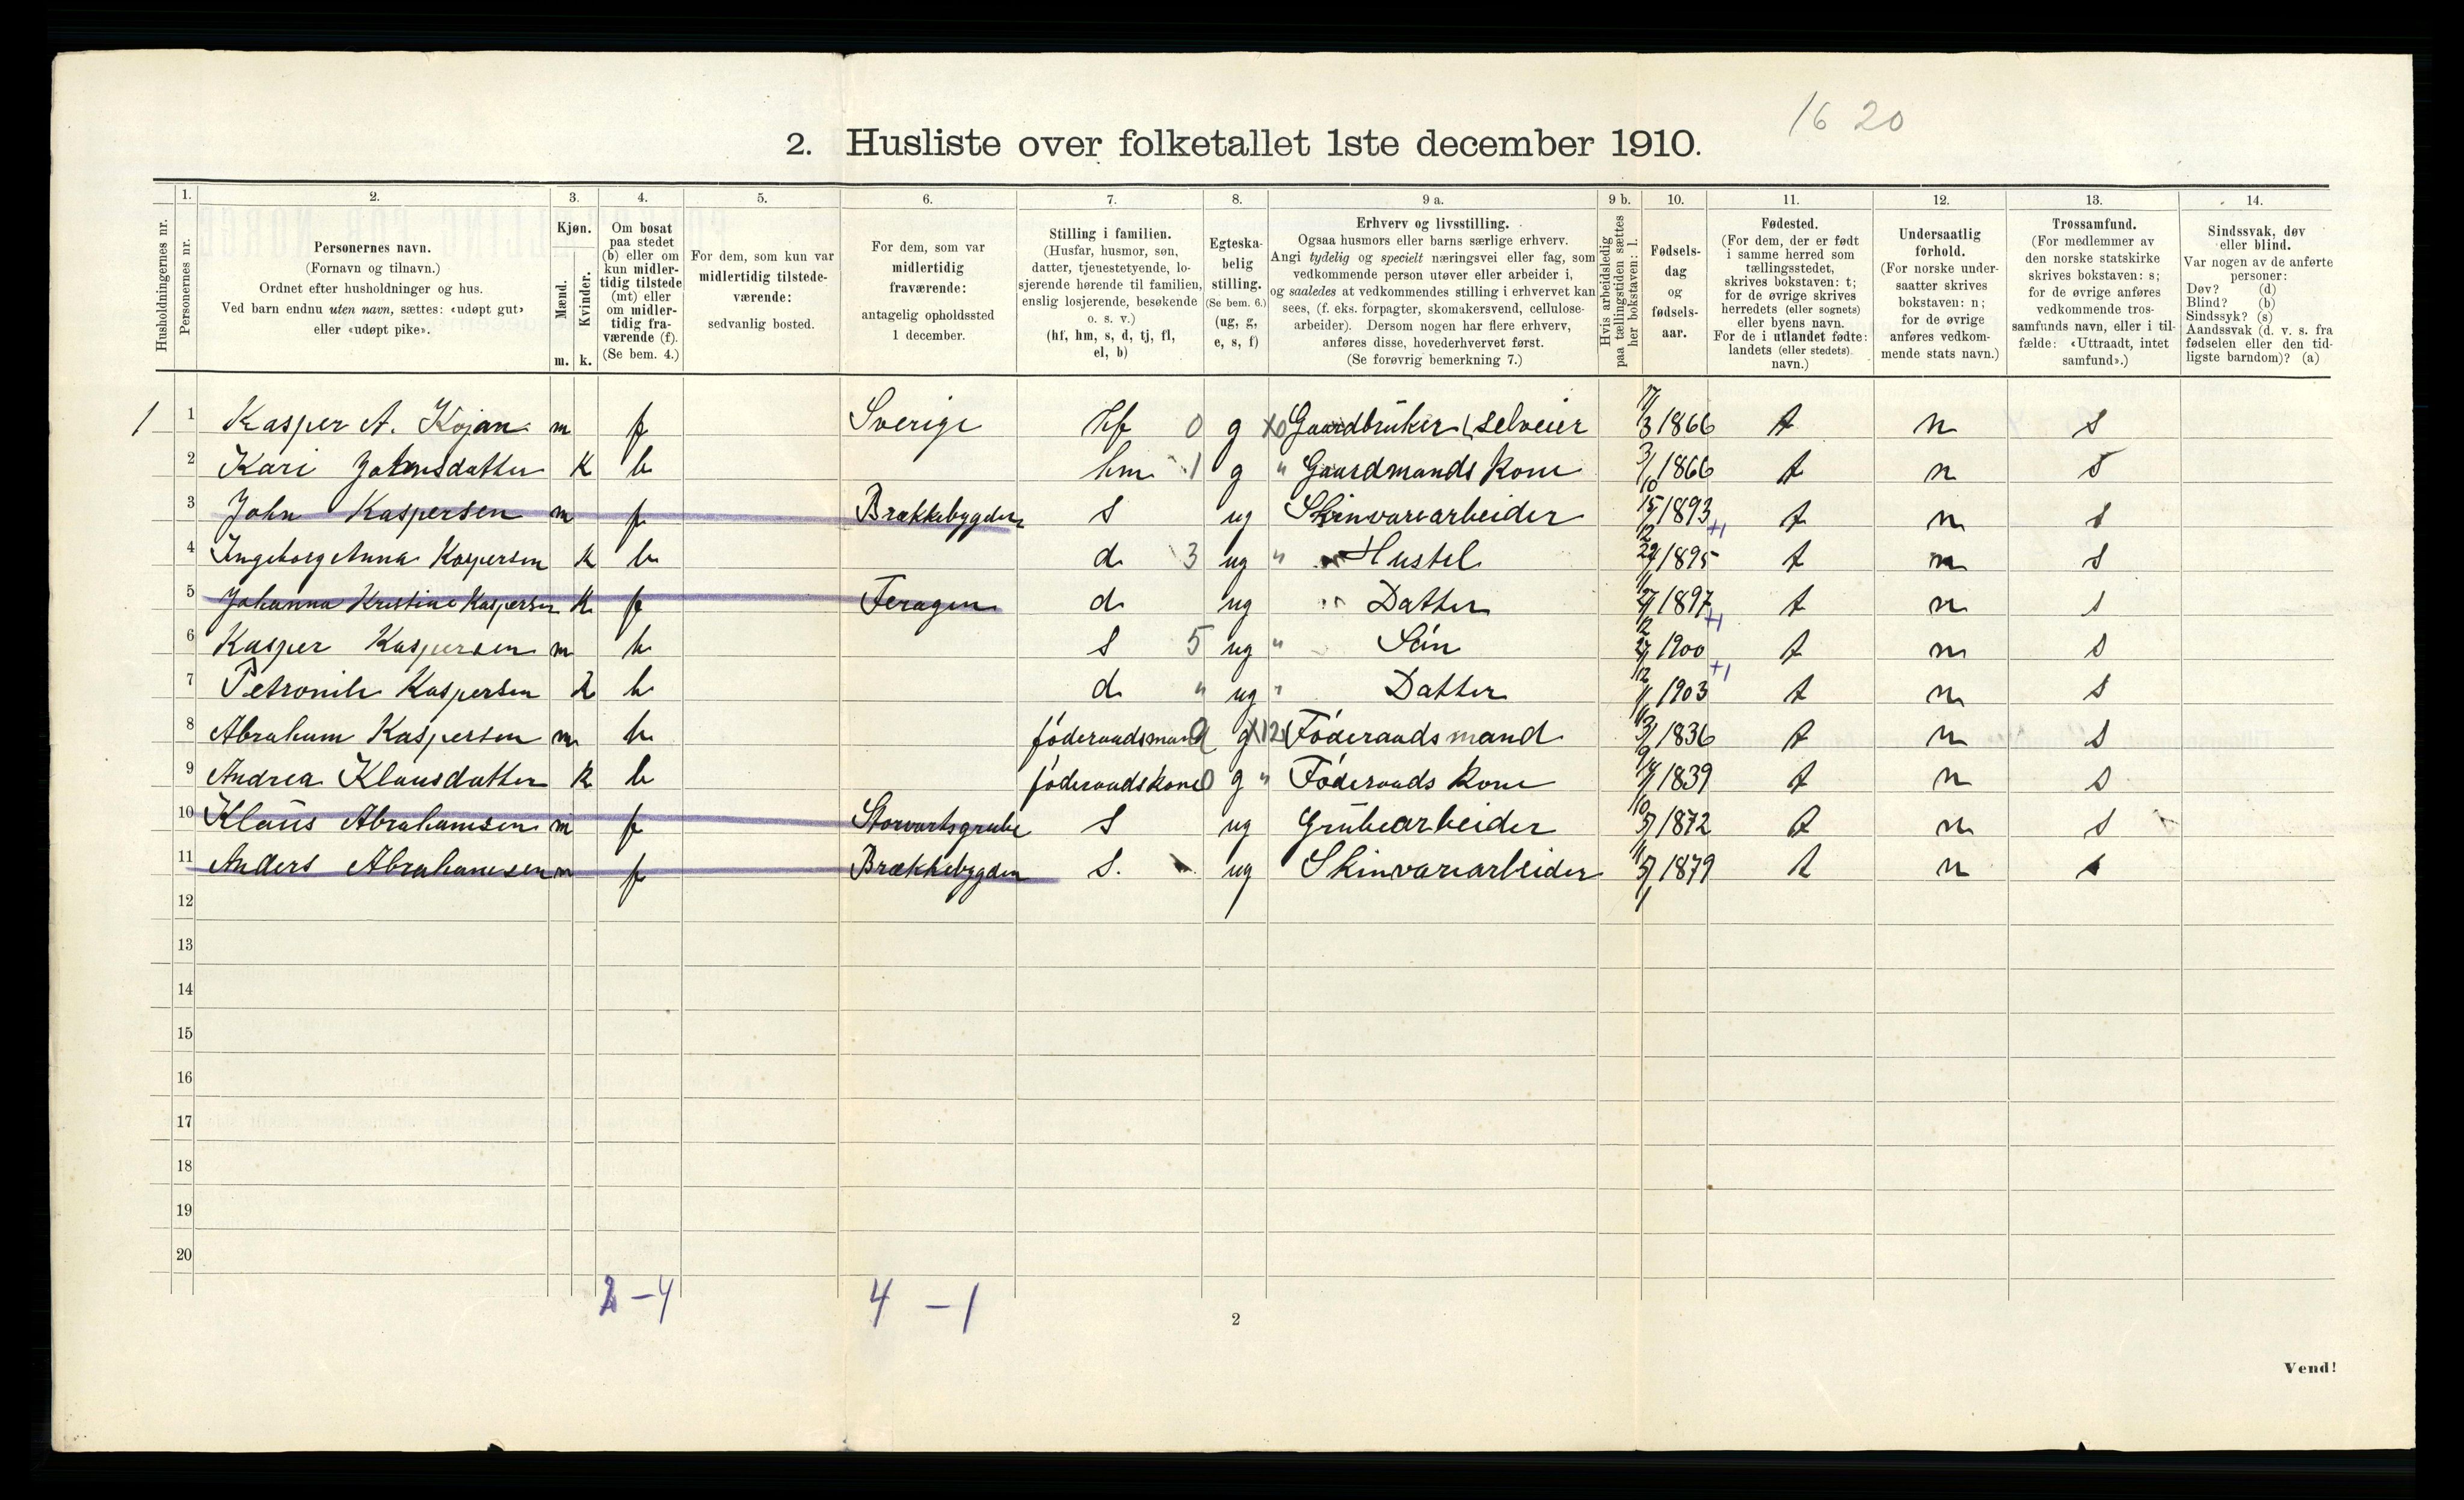 16 20
2. Husliste over folketallet 1ste december 1910.
Husholdningernes nr.
1.
Personernes nr.
2.
Personernes navn.
(Fornavn og tilnavn.)
Ordnet efter husholdninger og hus.
Ved barn endnu uten navn, sættes: «udøpt gut»
eller «udøpt pike».
3.
Kjøn.
Mænd.
Kvinder.
m. k.
4.
Om bosat
paa stedet
(b) eller om
kun midler-
tidig tilstede
(mt) eller
om midler-
tidig fra-
værende (f).
(Se bem. 4.)
5.
For dem, som kun var
midlertidig tilstede-
værende:
sedvanlig bosted.
6.
For dem, som var
midlertidig
fraværende:
antagelig opholdssted
1 december.
7.
Stilling i familien.
(Husfar, husmor, søn,
datter, tjenestetyende, lo-
sjerende hørende til familien,
enslig losjerende, besøkende
o. s. v.)
(hf, hm, s, d, tj, fl,
el, b)
8.
Egteska-
belig
stilling.
(Se bem. 6.)
(ug, g,
e, s, f)
9 a.
Erhverv og livsstilling.
Ogsaa husmors eller barns særlige erhverv.
Angi tydelig og specielt næringsvei eller fag, som
vedkommende person utøver eller arbeider i,
og saaledes at vedkommendes stilling i erhvervet kan
sees, (f. eks. forpagter, skomakersvend, cellulose-
arbeider). Dersom nogen har flere erhverv,
anføres disse, hovederhvervet først.
(Se forøvrig bemerkning 7.)
9 b.
Hvis arbeidsledig
paa tællingstiden sættes
her bokstaven: l.
10.
Fødsels-
dag
og
fødsels-
aar.
11.
Fødested.
(For dem, der er født
i samme herred som
tællingsstedet,
skrives bokstaven: t;
for de øvrige skrives
herredets (eller sognets)
eller byens navn.
For de i utlandet fødte:
landets (eller stedets)
navn.)
12.
Undersaatlig
forhold.
(For norske under-
saatter skrives
bokstaven: n;
for de øvrige
anføres vedkom-
mende stats navn.)
13.
Trossamfund.
(For medlemmer av
den norske statskirke
skrives bokstaven: s;
for de øvrige anføres
vedkommende tros-
samfunds navn, eller i til-
fælde: «Uttraadt, intet
samfund».)
14.
Sindssvak, døv
eller blind.
Var nogen av de anførte
personer:
Døv? (d)
Blind? (b)
Sindssyk? (s)
Aandssvak (d. v. s. fra
fødselen eller den tid-
ligste barndom)? (a)
1 1 Kasper A. Kojan m f Sverige Hf 0 g X0 Gaardbruker (selveier 17/3 1866 t n s
2 Kari Johnsdatter k b hm 1 g " Gaardmands kone 3/10 1866 t n s
3 John Kaspersen m f Brækkebygden s ug Skinvarearbeider 15/12 1893 +1 t n s
4 Ingeborg Anna Kaspersen k b d 3 ug " Hustel 29/11 1895 t n s
5 Johanna Kristine Kaspersen k f Feragen d ug " Datter 27/12 1897 +1 t n s
6 Kasper Kaspersen m b s 5 ug " Søn 27/12 1900 +1 t n s
7 Petronile Kaspersen k b d " ug " Datter 1903 t n s
8 Abraham Kaspersen m b føderaadsmand 0 g X12 Føderaadsmand 3/9 1836 t n s
9 Andrea Klausdatter k b føderaadskone 0 g " Føderaads kone 1839 t n s
10 Klaus Abrahamsen m f Storvartsgrube s ug Grubearbeider 1872 t n s
11 Anders Abrahamsen m f Brækkebygden s. ug Skinvarearbeider 5/1 1879 t n s
12
13
14
15
16
17
18
19
20
2-4 4-1
2
Vend!